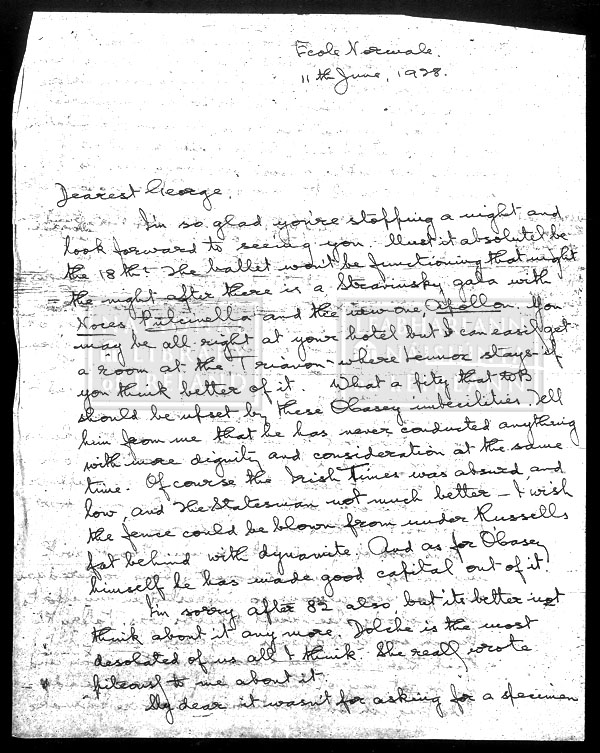 Ecole Normale.
11th June, 1928.
Dearest George.
I'm so glad you're stopping a night and
look forward to seeing you. Must it absolutely be
the 18th? The ballet won't be functioning that night
the night after there is a Stravinsky gala with
Noces, Pulcinella and the new one, Apollon. You
may be all right at your hotel but I can easily get
a room at the Trianon - where Lennox stays - if
you think better of it. What a pity that WB
should be upset by these Ocasey imbecilities. Tell
him from me that he has never conducted anything
with more dignity and consideration at the same
time. Of course the Irish Times was absurd, and
low, and the Statesman not much better - I wish
the fence could be blown from under Russells
fat behind with dynamite. And as for Ocasey
himself he has made good capital out of it.
I'm sorry after 82 also, but its better not
think about it any more. Dolche is the most
desolated of us all I think. She really wrote
piteously to me about it.
My dear it wasn't for asking for a specimen